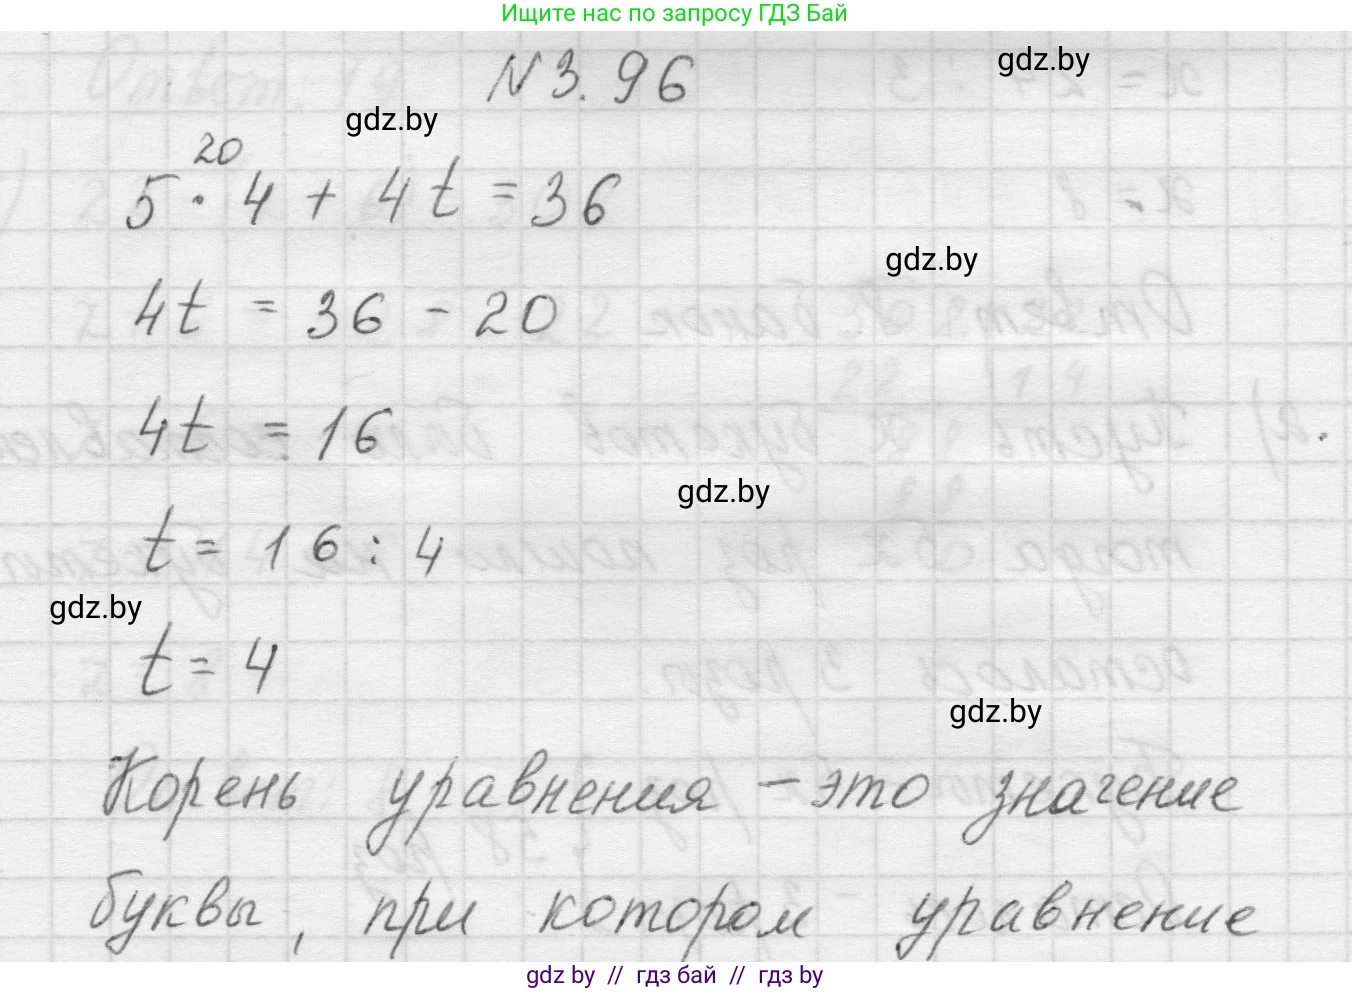 Ищите нас по запросу ГДЗ Бай
N 3.96
gdz.by
gdz.by
20
5 · 4 + 4t = 36
gdz.by
4t = 36 - 20
4t = 16
gdz.by
t = 16 : 4
gdz.by
t = 4
gdz.by
Корень уравнения - это значение
буквы, при котором уравнение
gdz.by // гдз бай // гдз by